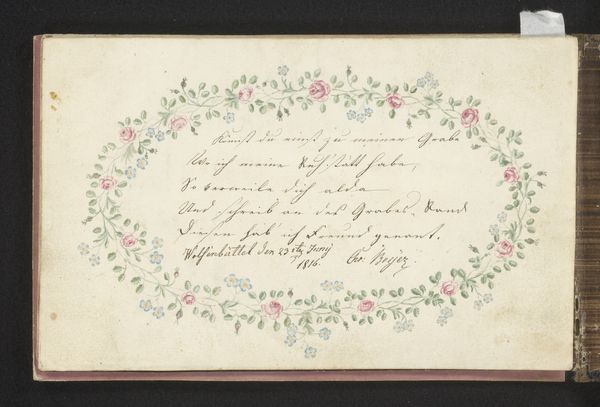 Kom̅st du einst zu meinen Grabe
Wo ich meine Ruh'statt habe,
So verweile dich alda
Und schreib an des Grabes-Rand
Diesen hab' ich Freund genant.
Wolfenbüttel den 23 ste Juny
1816. Beyer